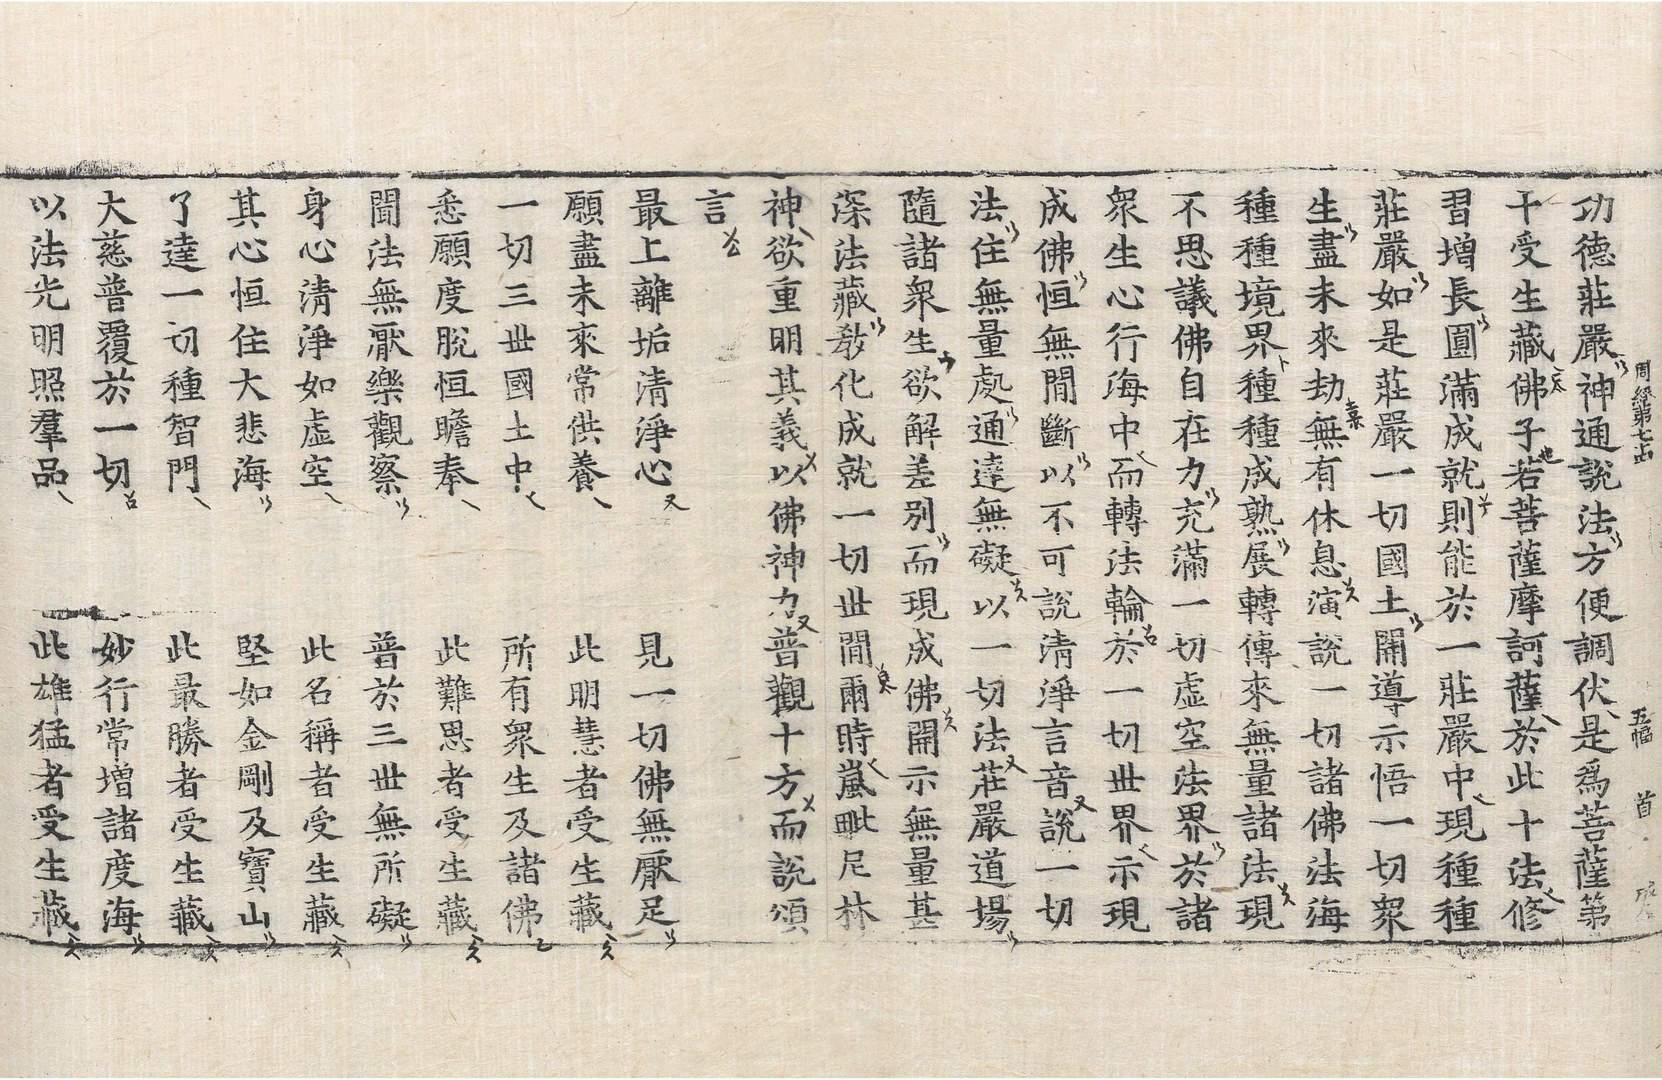 周經第七十四
五幅
首
功德莊嚴神通說法方便調伏是為菩薩第
十受生藏佛子若菩薩摩訶薩於此十法修
習增長圓滿成就則能於一莊嚴中現種種
莊嚴如是莊嚴一切國土開導示悟一切眾
生盡未來劫無有休息演說一切諸佛法海
種種境界種種成熟展轉傳來無量諸法現
不思議佛自在力充滿一切虛空法界於諸
眾生心行海中而轉法輪於一切世界示現
成佛恒無間斷以不可說清淨言音說一切
法住無量處通達無礙以一切法莊嚴道場
隨諸眾生欲解差別而現成佛開示無量甚
深法藏教化成就一切世間爾時嵐毗尼林
神欲重明其義以佛神力普觀十方而說頌
言
最上離垢清淨心 見一切佛無厭足
願盡未來常供養 此明慧者受生藏
一切三世國土中 所有眾生及諸佛
悉願度脫恒瞻奉 此難思者受生藏
聞法無厭樂觀察 普於三世無所礙
身心清淨如虛空 此名稱者受生藏
其心恒住大悲海 堅如金剛及寶山
了達一切種智門 此最勝者受生藏
大慈普覆於一切 妙行常增諸度海
以法光明照羣品 此雄猛者受生藏